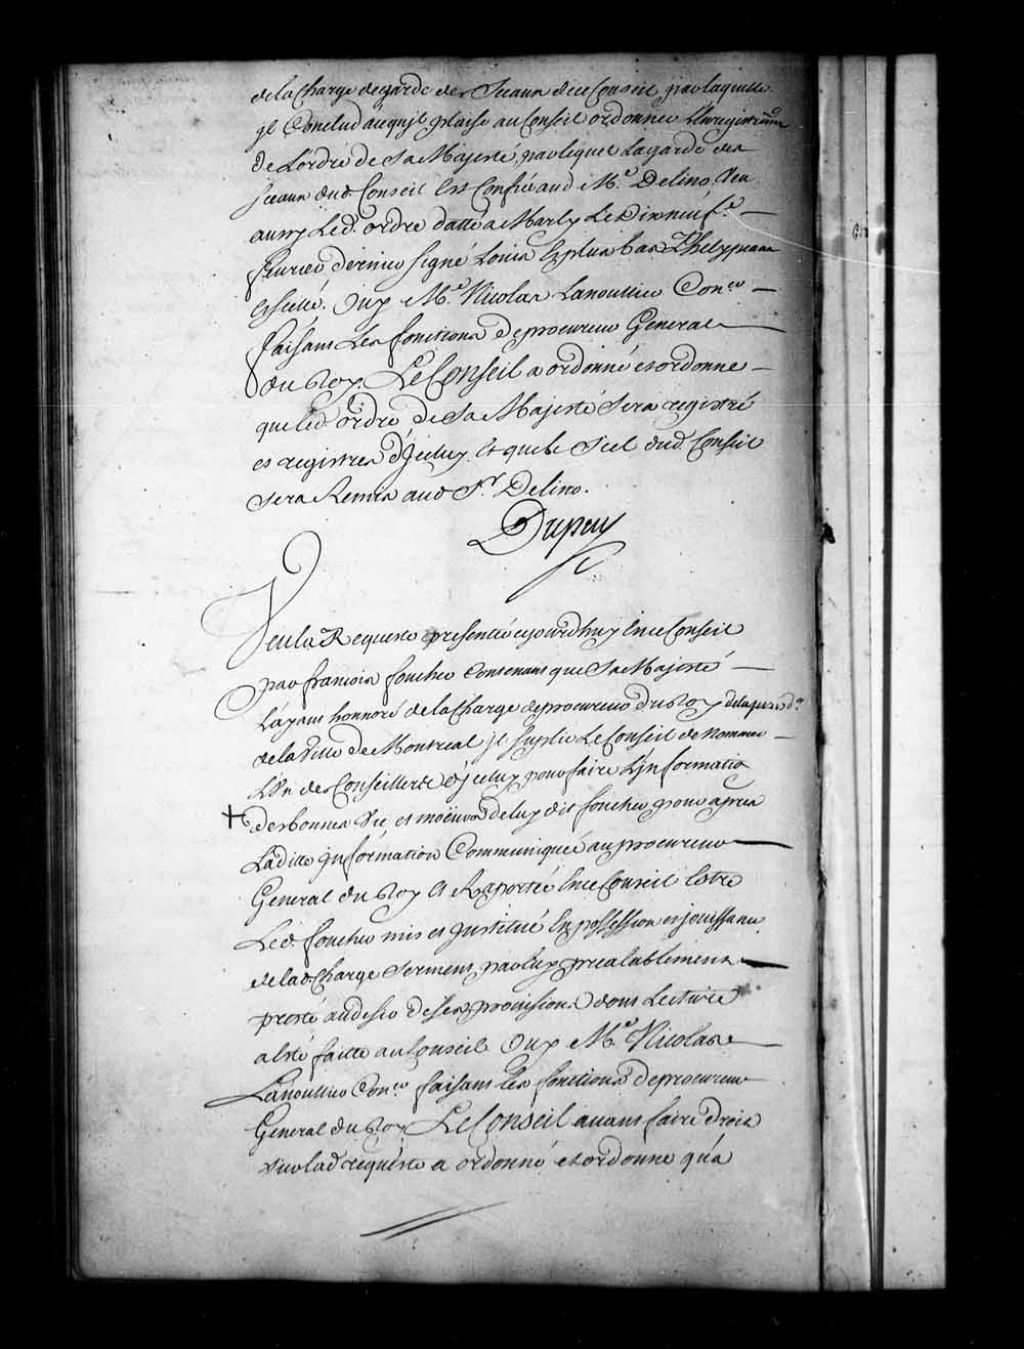 de la Charge de garde des Sceaux dud Conseil par laquelle
jl Conclud a ce qu'jl plaise au Conseil ordonner l'Enregistremt
de L'ordre de Sa Majesté, par lequel La garde des
sceaux dud. Conseil Est Confiée aud. Me. Delino, Veu
aussy Led. ordre datté a Marly Le Dixneufe. —
feurier dernier signé Louis Et plus bas Phelypeaux
Et scellé. Ouy Me. Nicolas Lanoullier Coner —
faisant Les fonctions de procureur General
du Roy. Le Conseil a ordonné et ordonne —
que led. ordre de Sa Majesté Sera registré
es registres d'Jceluy. Et que le Scel dud. Conseil
sera Remis aud Sr. Delino.
Dupuy
Veu la Requeste presentée cejourdhuy En ce Conseil
par francois foucher Contenant que Sa Majesté —
L'ayant honnoré de la Charge de procureur du Roy de la jurisdon.
de la Ville de Montreal jl suplie Le Conseil de Nommer —
L'Vn des Conseillers d'jceluy pour faire L'jnformatio
+ des bonnes Vie et moëurs de luy dit foucher pour aprés
Laditte jnformation Communiquée au procureur
General du Roy Et Raportée En ce Conseil Estre
Led. foucher mis et jnstitué En possession et jouissance
de lad. Charge serment par luy prealablement
presté au desir de ses provisions dont Lecture
a Esté faitte au Conseil Ouy Me. Nicolas
Lanoullier Coner. faisant les fonctions de procureur
General du Roy Le Conseil auant faire droit
sur lad requeste a ordonné et ordonne qu'a